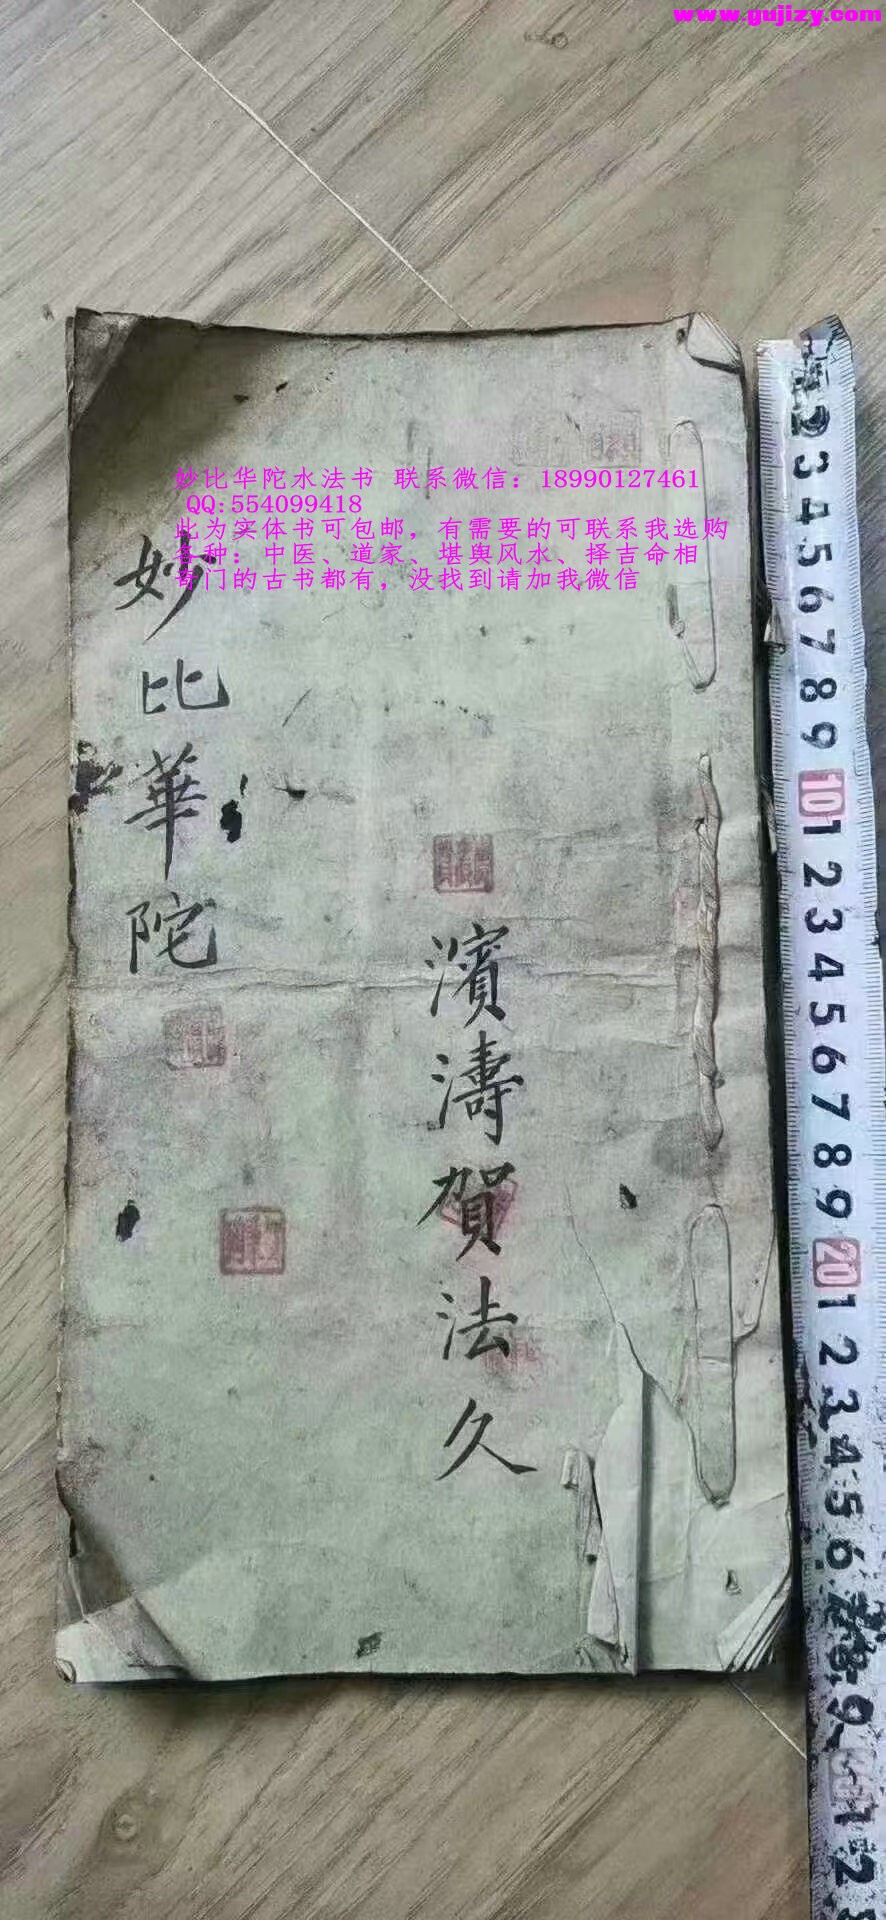 www.gujizy.com
妙比华陀水法书 联系微信：18990127461
QQ:554099418
此为实体书可包邮，有需要的可联系我选购
各种：中医、道家、堪舆风水、择吉命相
奇门的古书都有，没找到请加我微信
妙比華陀
濱濤賀法久
2 3 4 5 6 7 8 9 10 1 2 3 4 5 6 7 8 9 20 1 2 3 4 5 6
9
1 2